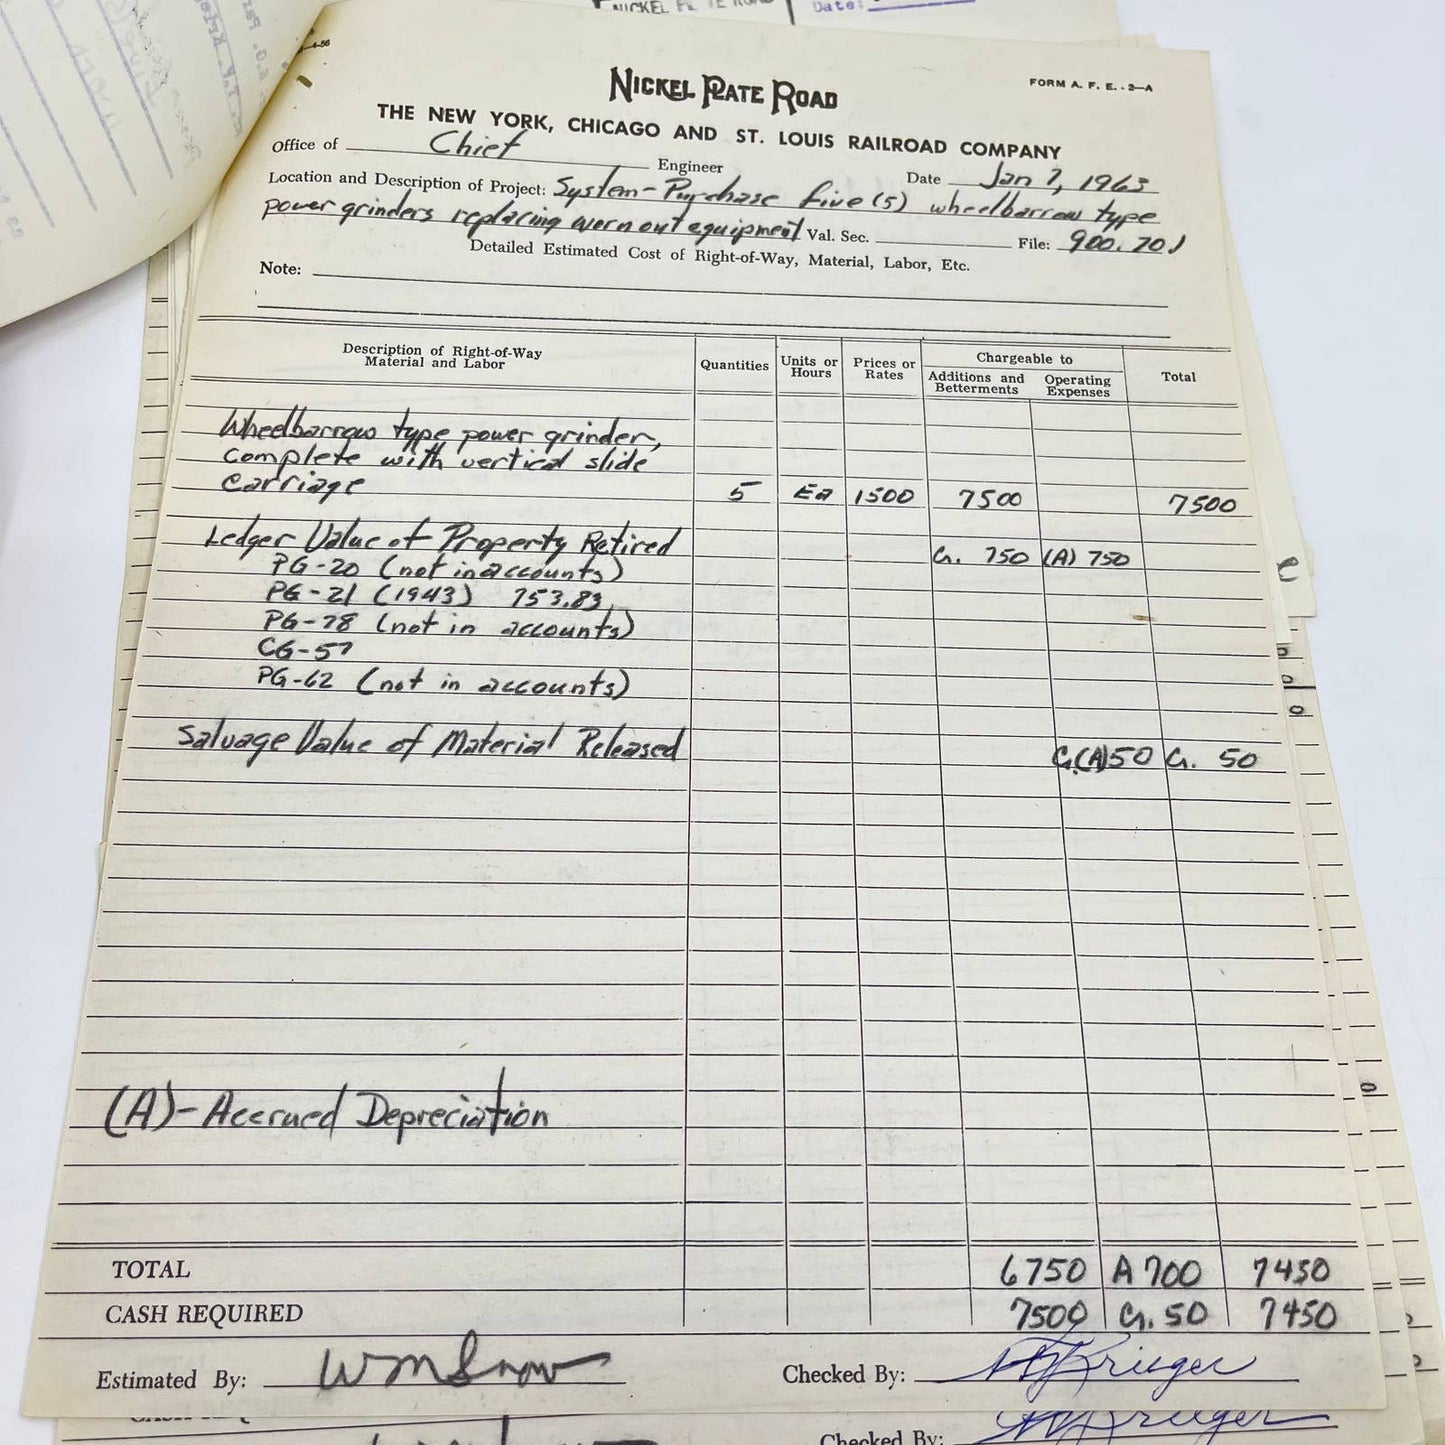 NICKEL PLATE ROAD
Date:
NICKEL PLATE ROAD
FORM A. F. E. - 2—A
THE NEW YORK, CHICAGO AND ST. LOUIS RAILROAD COMPANY
Office of Chief Engineer Date Jan 7, 1963
Location and Description of Project: System - Purchase five (5) wheelbarrow type
power grinders replacing worn out equipment Val. Sec. File: 900.701
Detailed Estimated Cost of Right-of-Way, Material, Labor, Etc.
Note:
Description of Right-of-Way Material and Labor Quantities Units or Hours Prices or Rates Chargeable to Additions and Betterments Operating Expenses Total
Wheelbarrow type power grinder,
complete with vertical slide
carriage 5 Ea 1500 7500 7500
Ledger Value of Property Retired Cr. 750 (A) 750
PG-20 (not in accounts)
PG-21 (1943) 753.83
PG-78 (not in accounts)
CG-57
PG-62 (not in accounts)
Salvage Value of Material Released Cr.(A)50 Cr. 50
(A)-Accrued Depreciation
TOTAL 6750 A 700 7450
CASH REQUIRED 7500 Cr. 50 7450
Estimated By: Wm Snow Checked By: Krieger
Checked By: Krieger